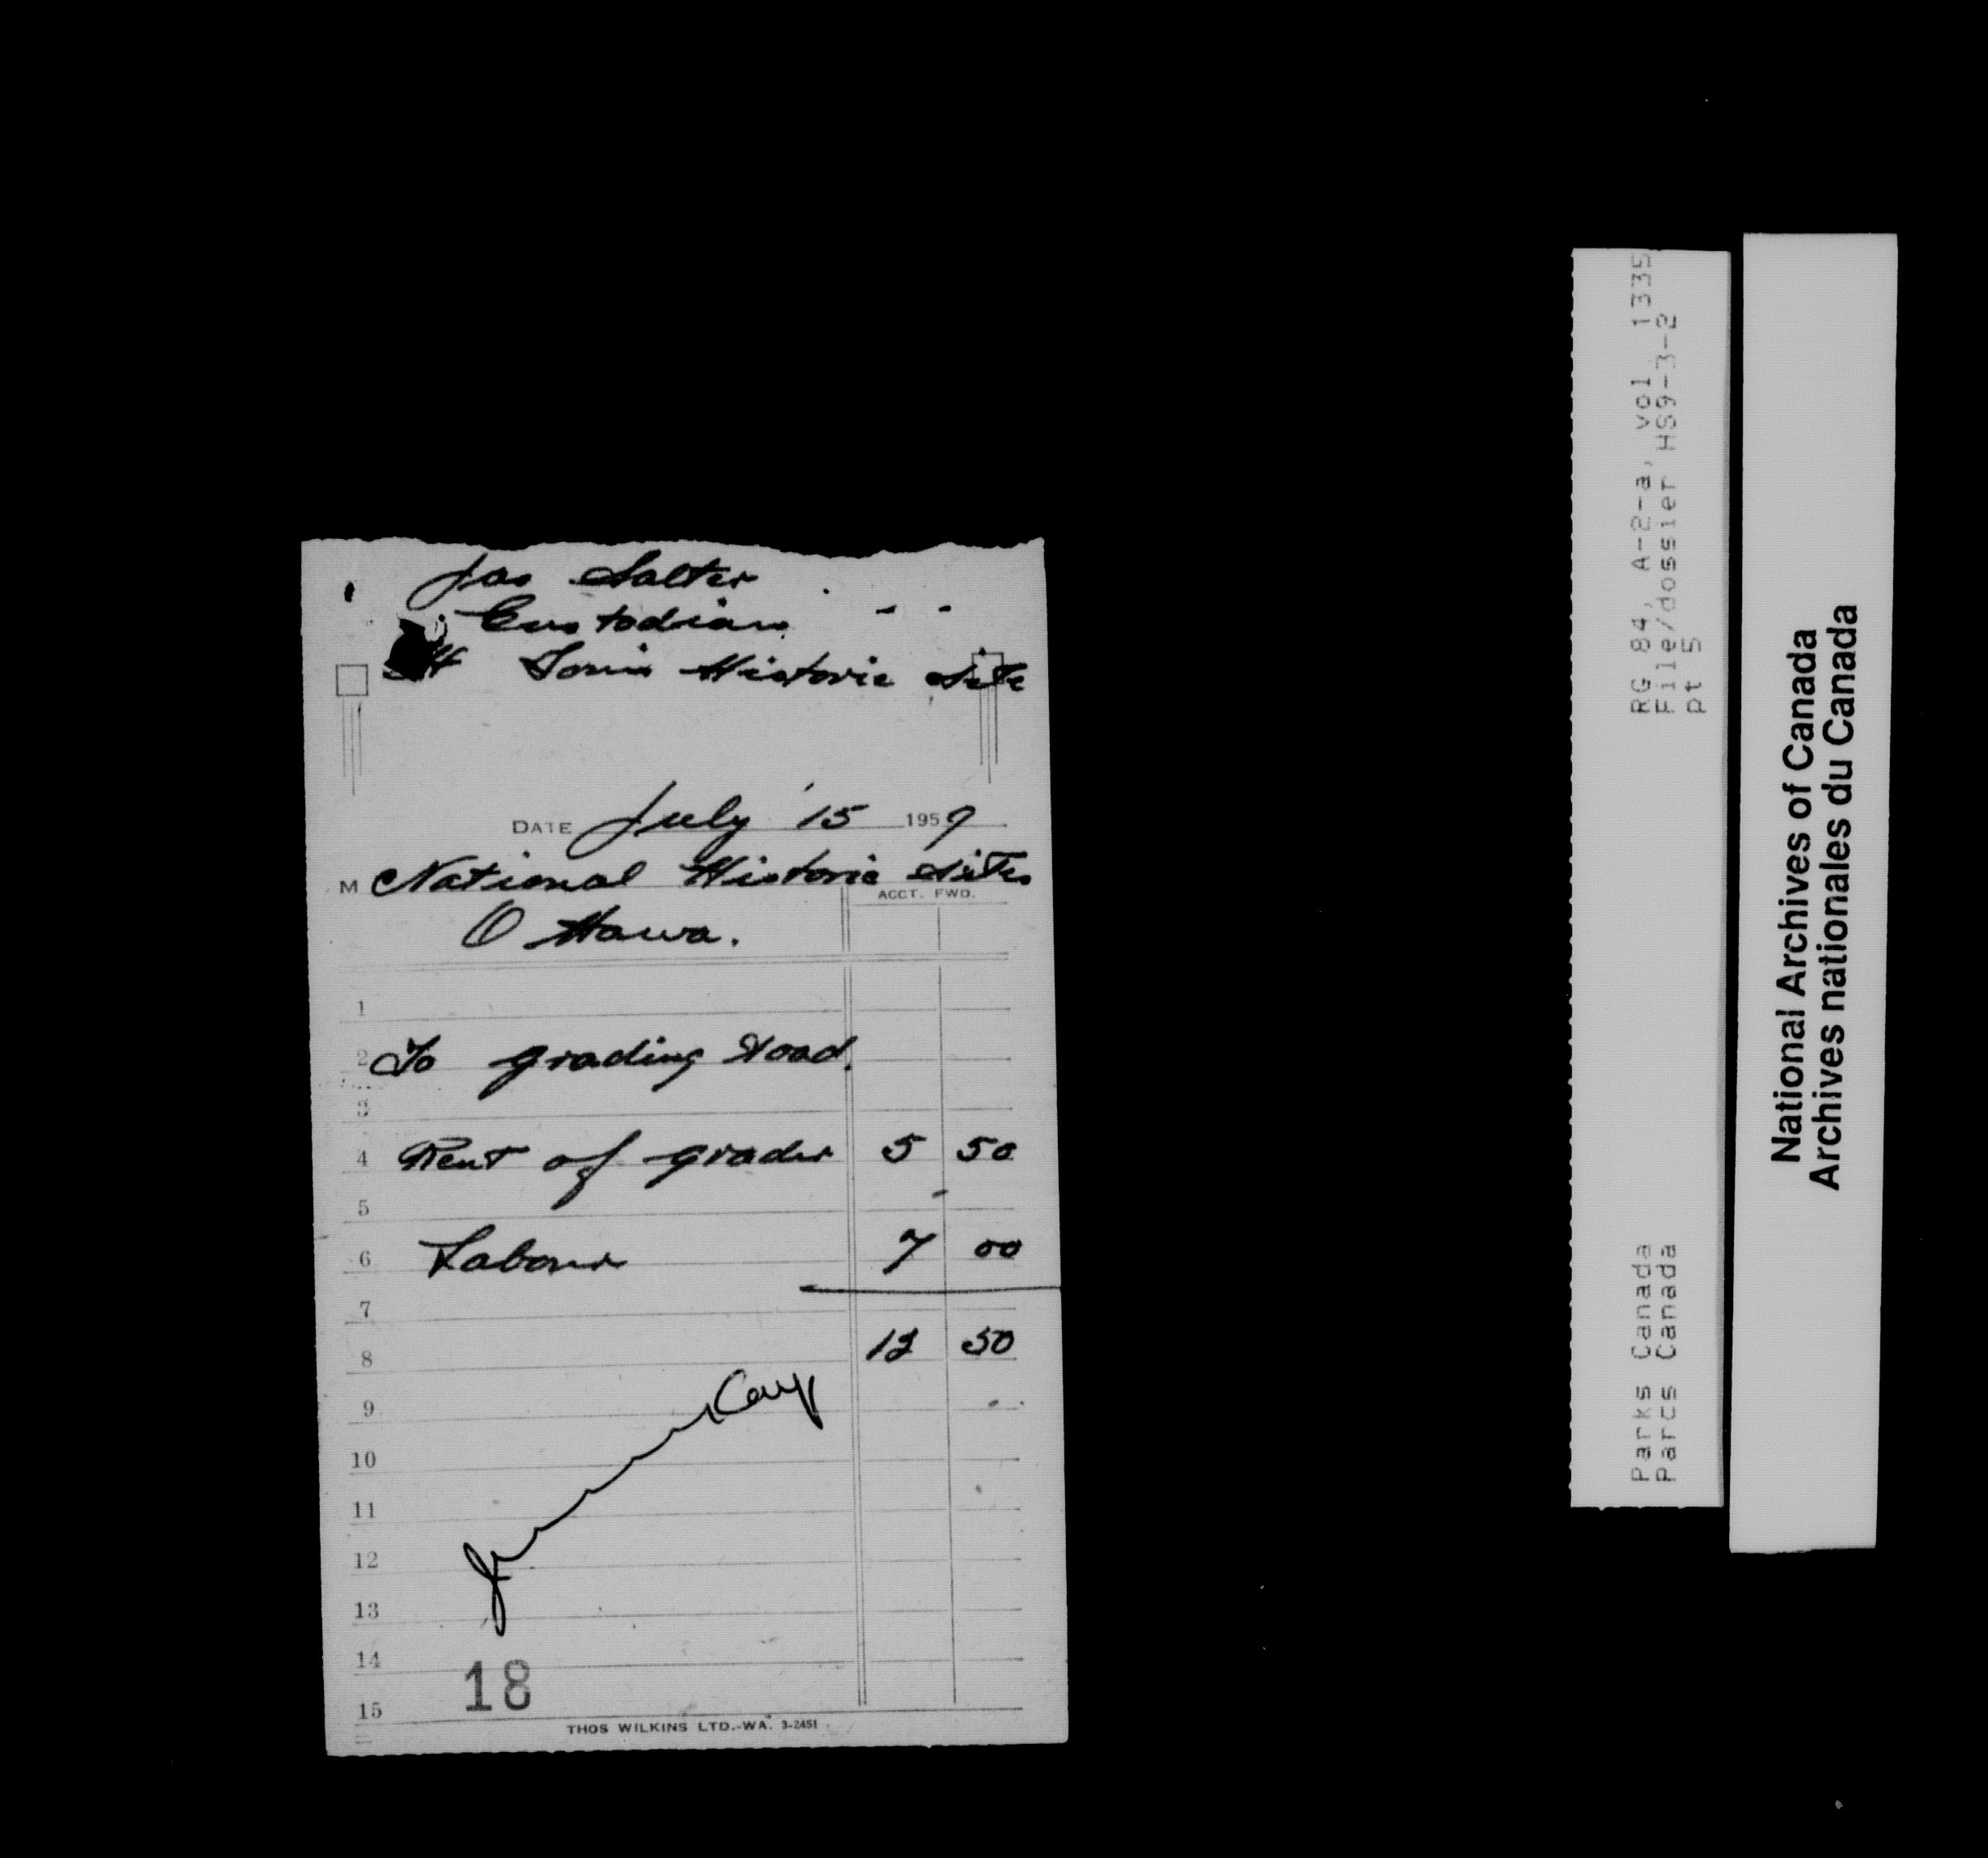 Jas Salter
Custodian
St Louis Historic Site
DATE July 15 1959
M National Historic Sites
ACCT. FWD.
Ottawa.
1
2 To grading Road.
3
4 Rent of grader 5 50
5
6 Labour 7 00
7
8 12 50
9
10
11
12
13
14
18
15
THOS WILKINS LTD.-WA. 3-2451
RG 84, A-2-a, vol. 1335
File/dossier HS9-3-2
pt 5
Parks Canada
Parcs Canada
National Archives of Canada
Archives nationales du Canada